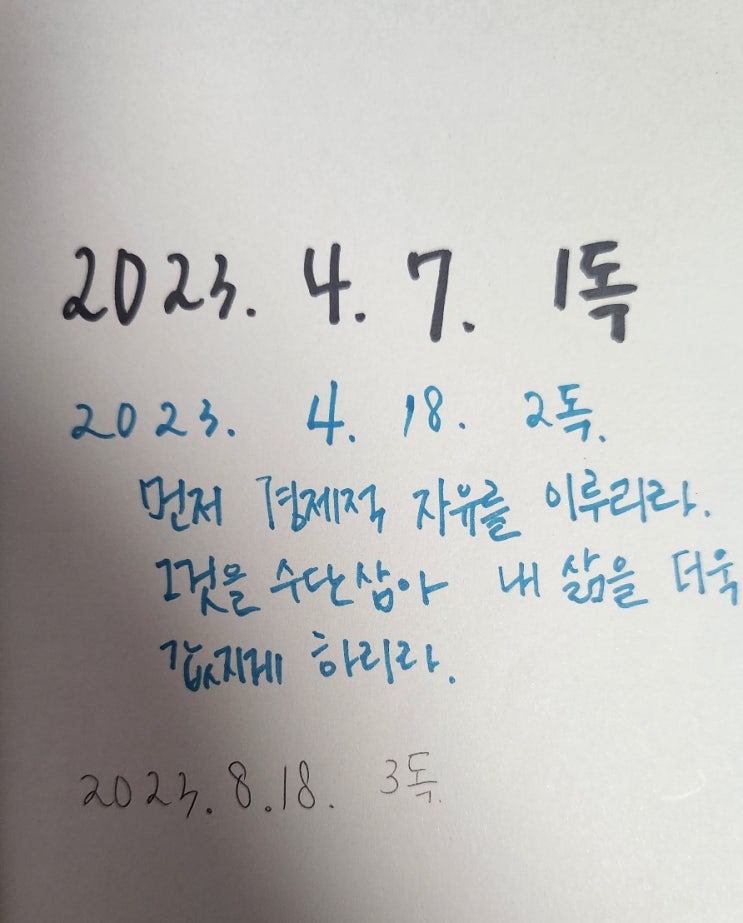 2023. 4. 7. 1독
2023. 4. 18. 2독.
먼저 경제적 자유를 이루리라.
그것을 수단삼아 내 삶을 더욱
값지게 하리라.
2023. 8. 18. 3독